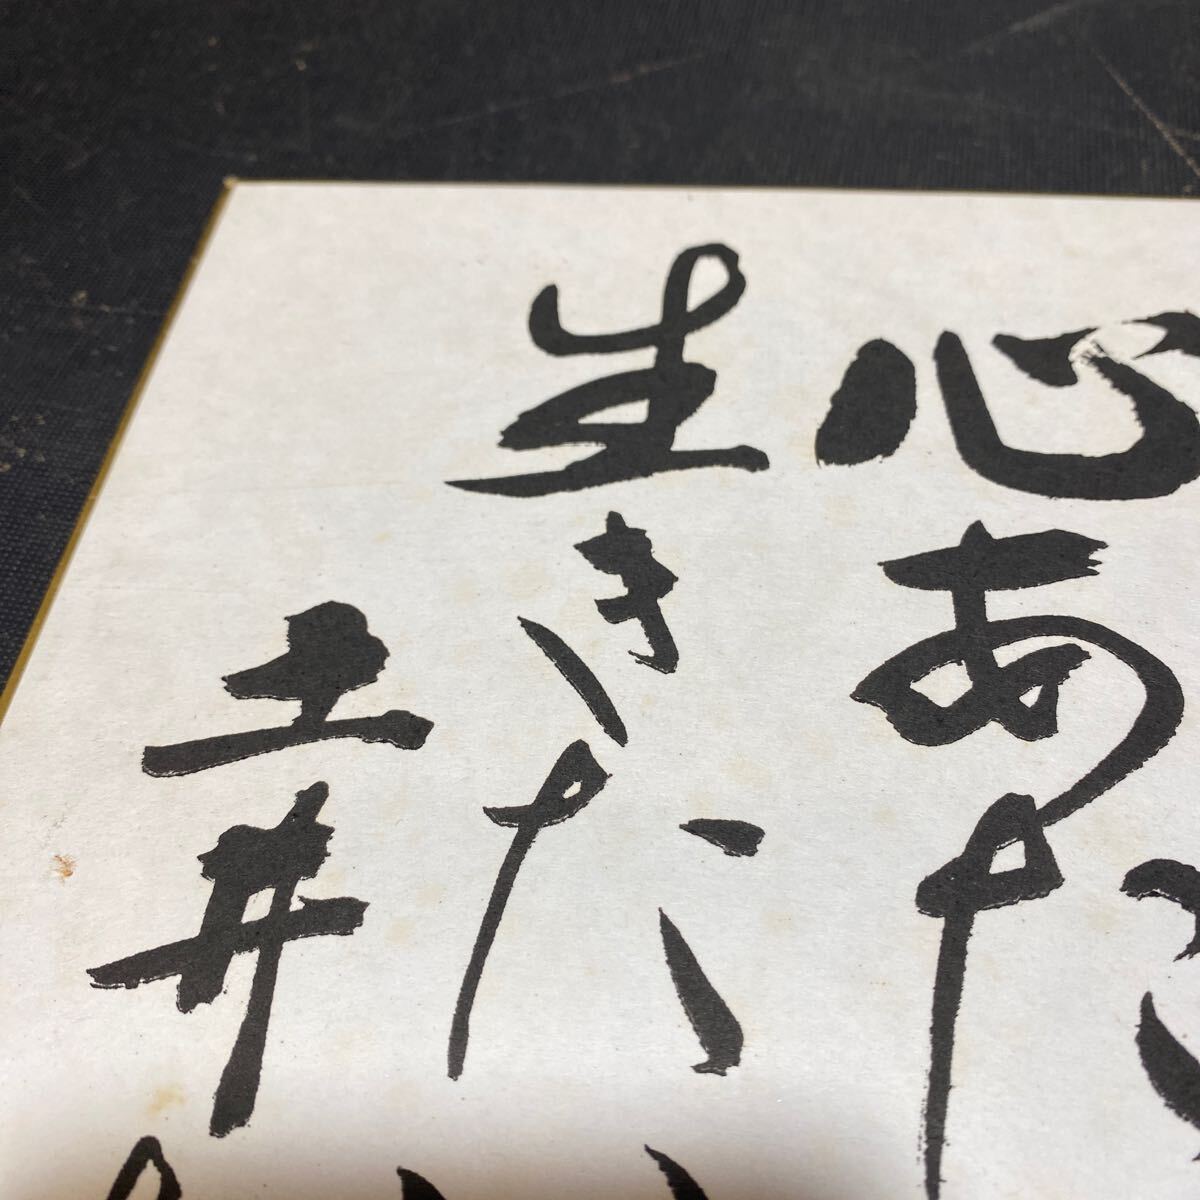 心あた
生きた
土井